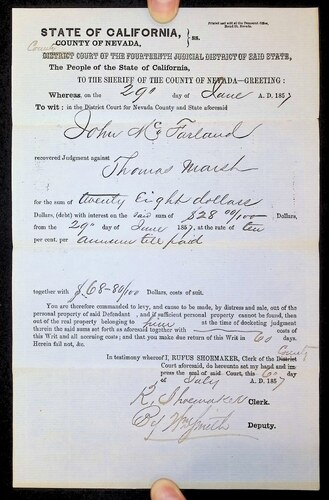 Printed and sold at the Democrat Office,
Broad St. Nevada.
STATE OF CALIFORNIA,
COUNTY OF NEVADA, } ss.
County
DISTRICT COURT OF THE FOURTEENTH JUDICIAL DISTRICT OF SAID STATE,
The People of the State of California,
TO THE SHERIFF OF THE COUNTY OF NEVADA—GREETING:
Whereas, on the 29th day of June A. D. 1857
To wit: in the District Court for Nevada County and State aforesaid
John McFarland
recovered Judgment against
Thomas Marsh
for the sum of twenty Eight dollars
Dollars, (debt) with interest on the said sum of $28 00/100 Dollars,
from the 29th day of June 1857, at the rate of ten
per cent. per annum till paid
together with $68-80/100 Dollars, costs of suit.
You are therefore commanded to levy, and cause to be made, by distress and sale, out of the
personal property of said Defendant, and if sufficient personal property cannot be found, then
out of the real property belonging to him at the time of docketing judgment
therein the said sums set forth as aforesaid together with costs of
this Writ and all accruing costs; and that you make due return of this Writ in 60 days.
Herein fail not, &c.
In testimony whereof I, RUFUS SHOEMAKER, Clerk of the District
County
Court aforesaid, do hereunto set my hand and im-
press the seal of said Court, this 6th day
of July A. D. 1857
R. Shoemaker Clerk.
By Wm Smith Deputy.